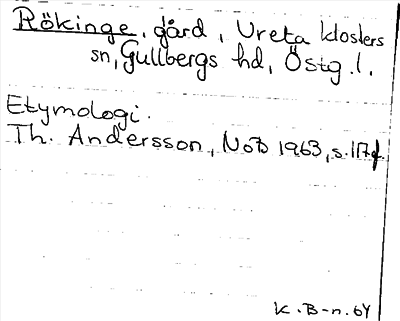 Rökinge, gård, Vreta klosters
sn, Gullbergs hd, Östg. l.
Etymologi.
Th. Andersson, NoB 1963, s. 117 f.
K. B-n. 64